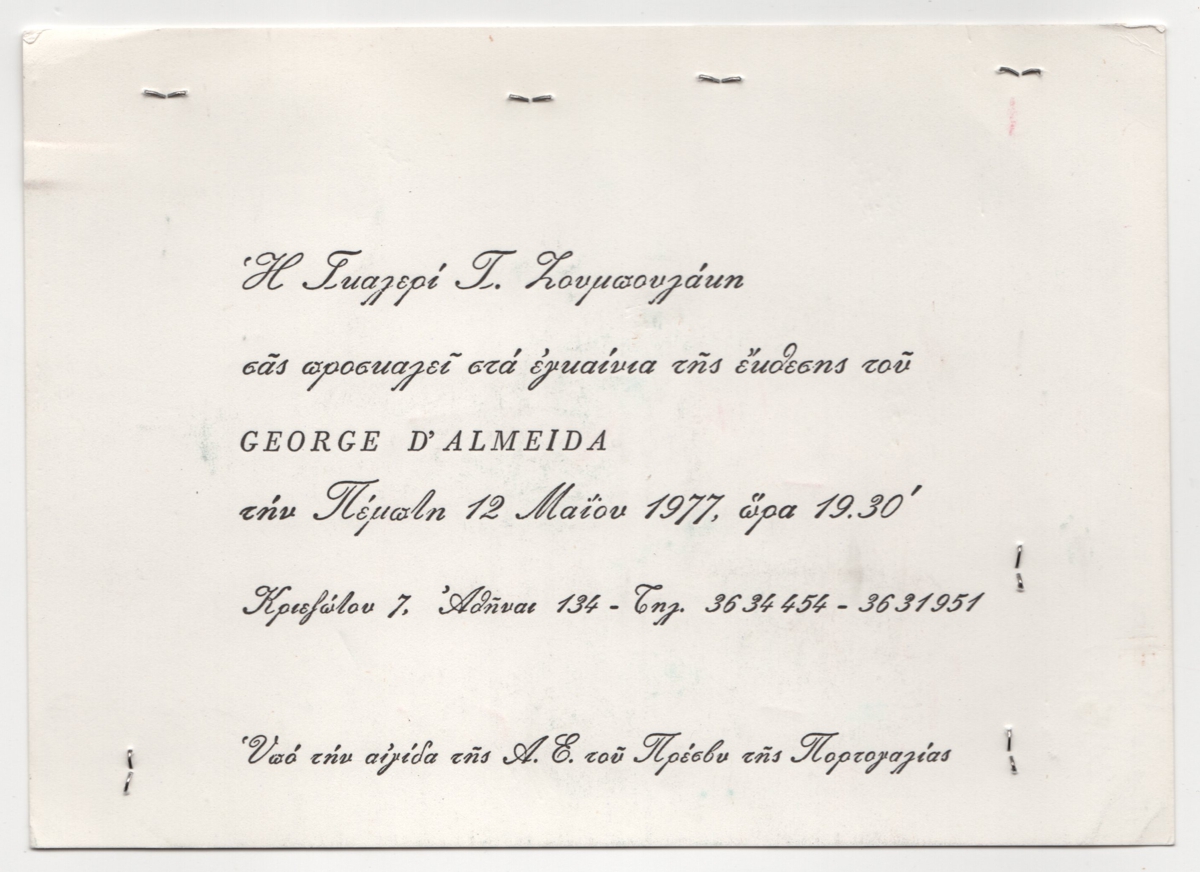 Ἡ Γκαλερί Γ. Ζουμπουλάκη
σᾶς προσκαλεῖ στά ἐγκαίνια τῆς ἔκθεσης τοῦ
GEORGE D’ ALMEIDA
τήν Πέμπτη 12 Μαΐου 1977, ὥρα 19.30′
Κριεζώτου 7, Ἀθῆναι 134 - Τηλ. 3634454 - 3631951
Ὑπό τήν αἰγίδα τῆς Α.Ε. τοῦ Πρέσβυ τῆς Πορτογαλίας